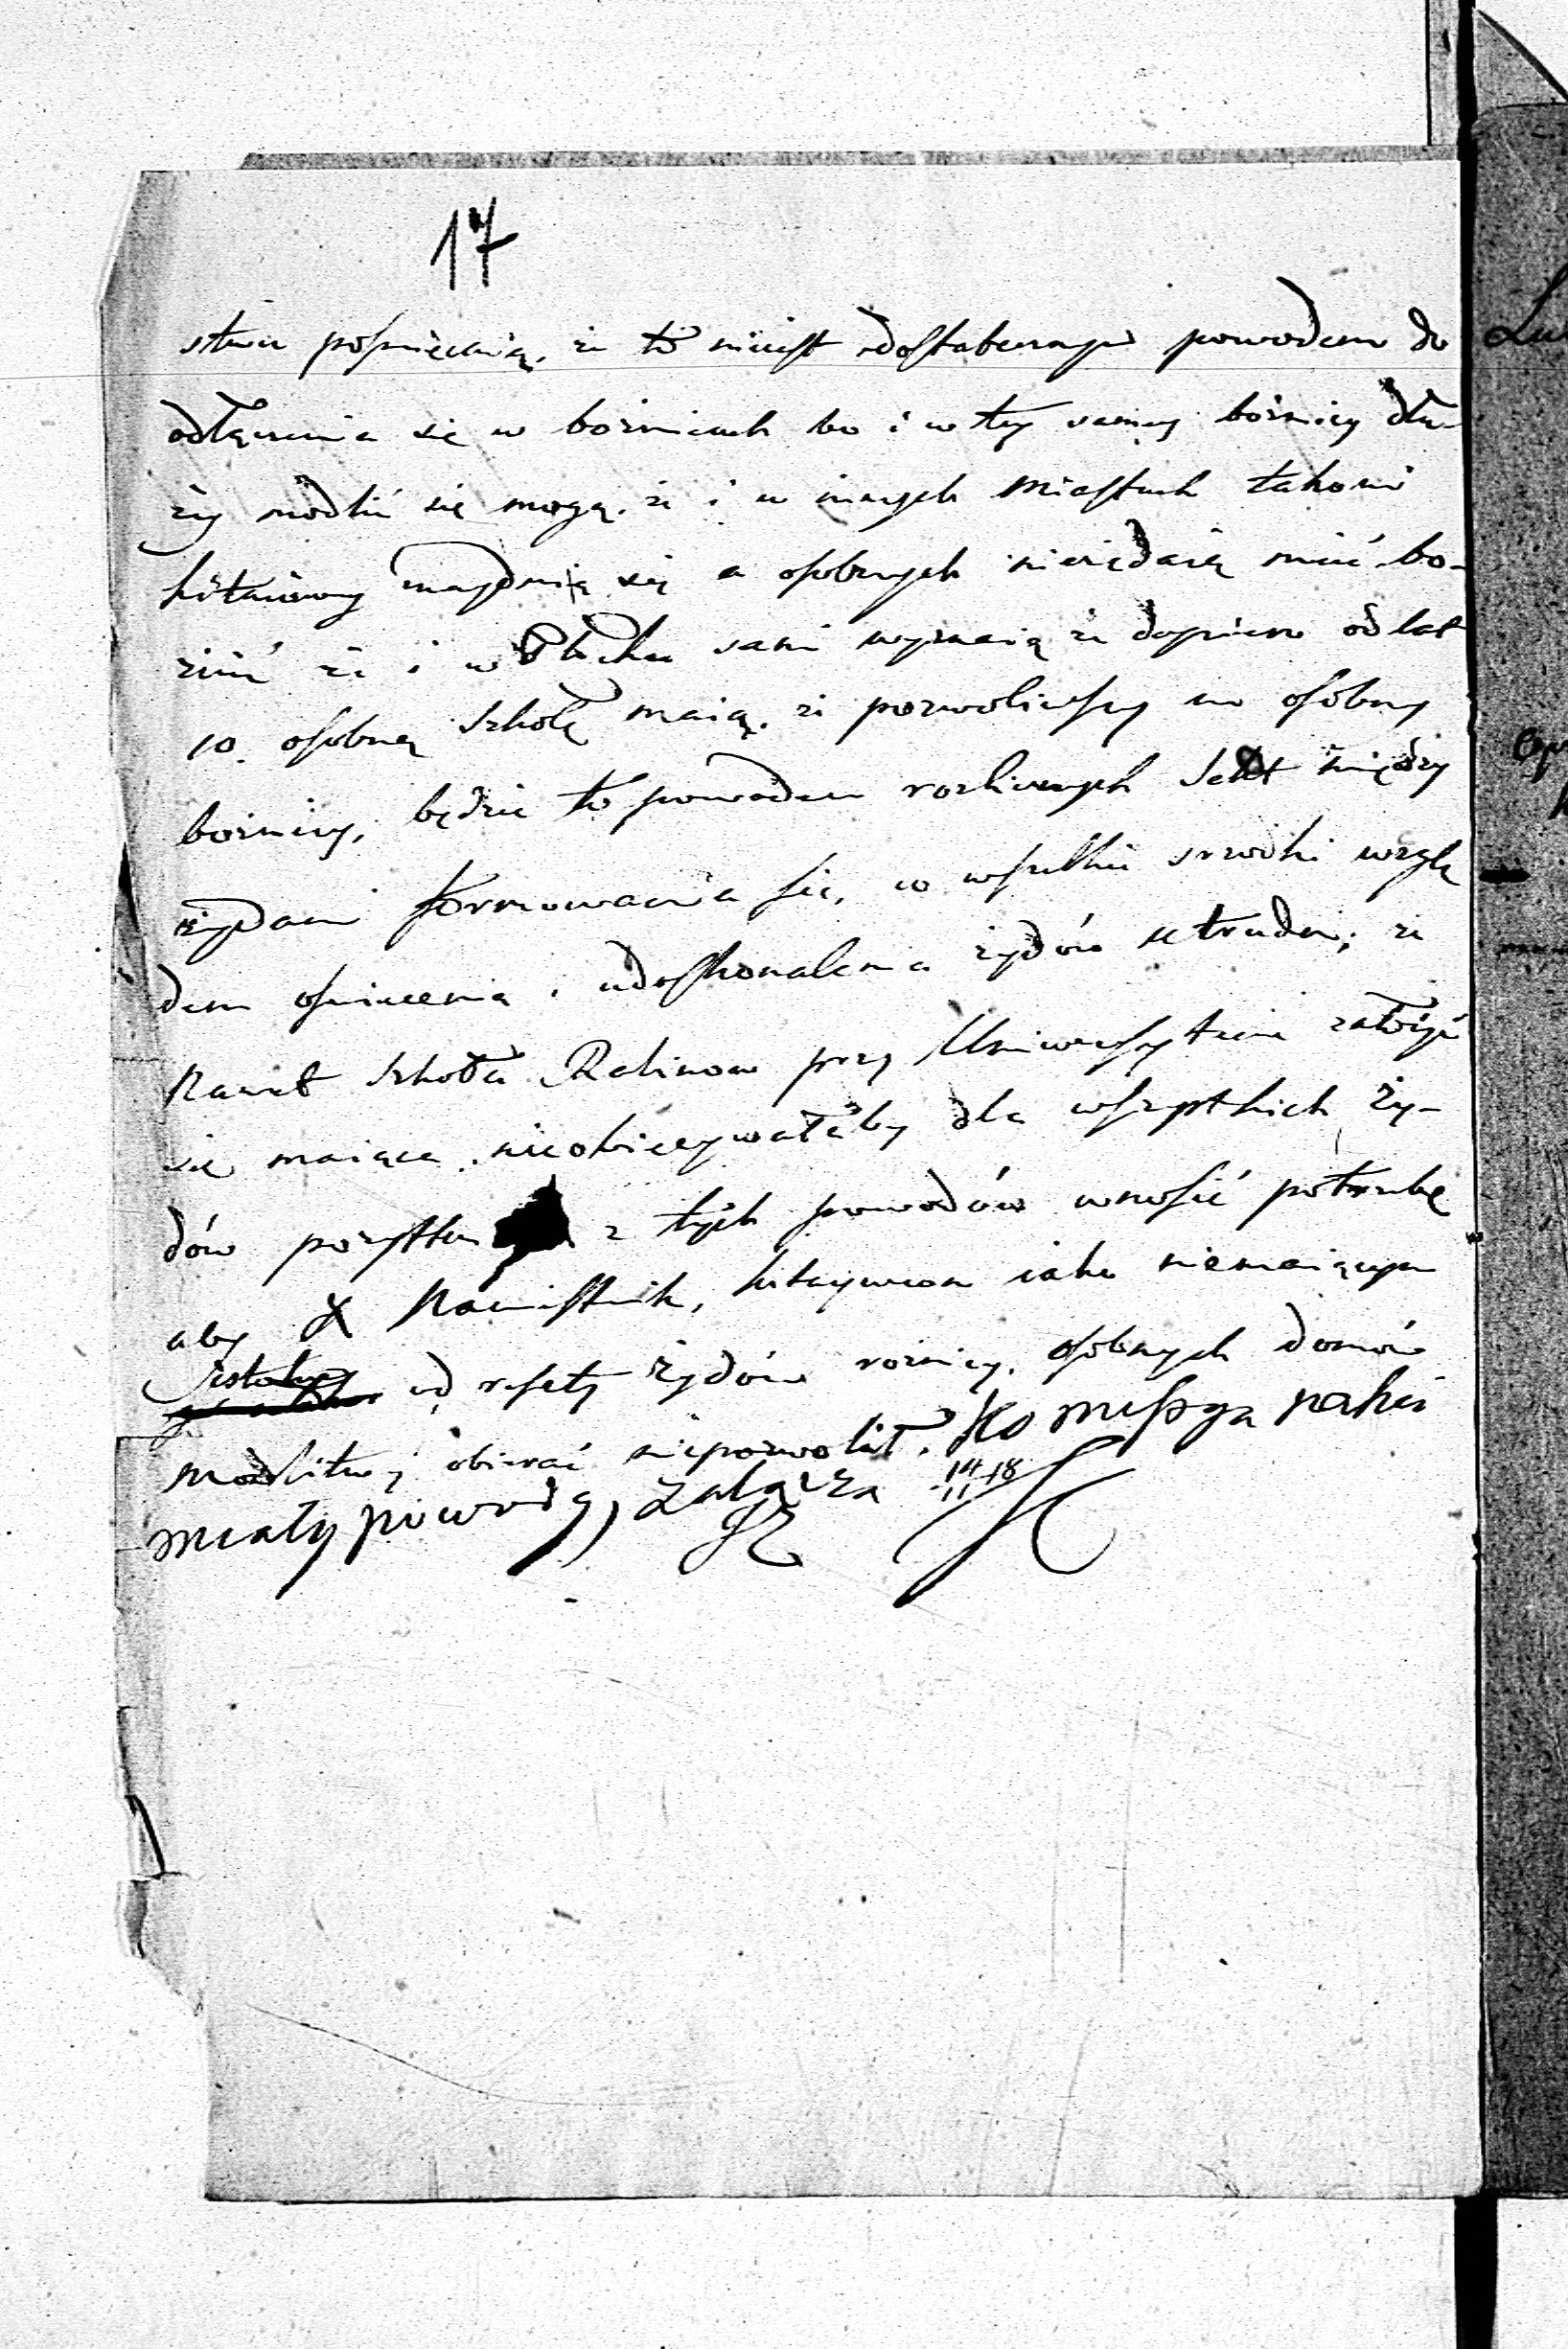 17
stwu poświęcaią. że to nieiest dostatecznym powodem do
odłączenia się w bożnicach bo i w tey samey bożnicy dłu-
żey modlić się mogą. że i w innych Miastach takowi
kitaiowcy znayduią się a osobnych nieżądaią mieć bo-
żnić że i w Płocku sami wyznaią że dopiero od lat
10. osobną Szkołę maią. że pozwoliwszy im osobney
bożnicy, będzie to powodem rozlicznych Sekt między
żydami formowania się, co wszelkie srzodki wzglę
dem oświecenia i udoskonalenia żydów utrudni; że
Nawet Szkoła Rabinow przy Uniwersytecie założyć
się maiąca nieobiecywałaby dla wszystkich ży-
dów pożytku z tych powodów wnosić potrzebę
aby X Namiestnik, kitaywcom iako niemaiącym
istotney od reszty Żydów roznicy. osobnych domów
modlitwy obierać niepozwolił. Kommissya iakie
miały powody, załącza 14/11 18